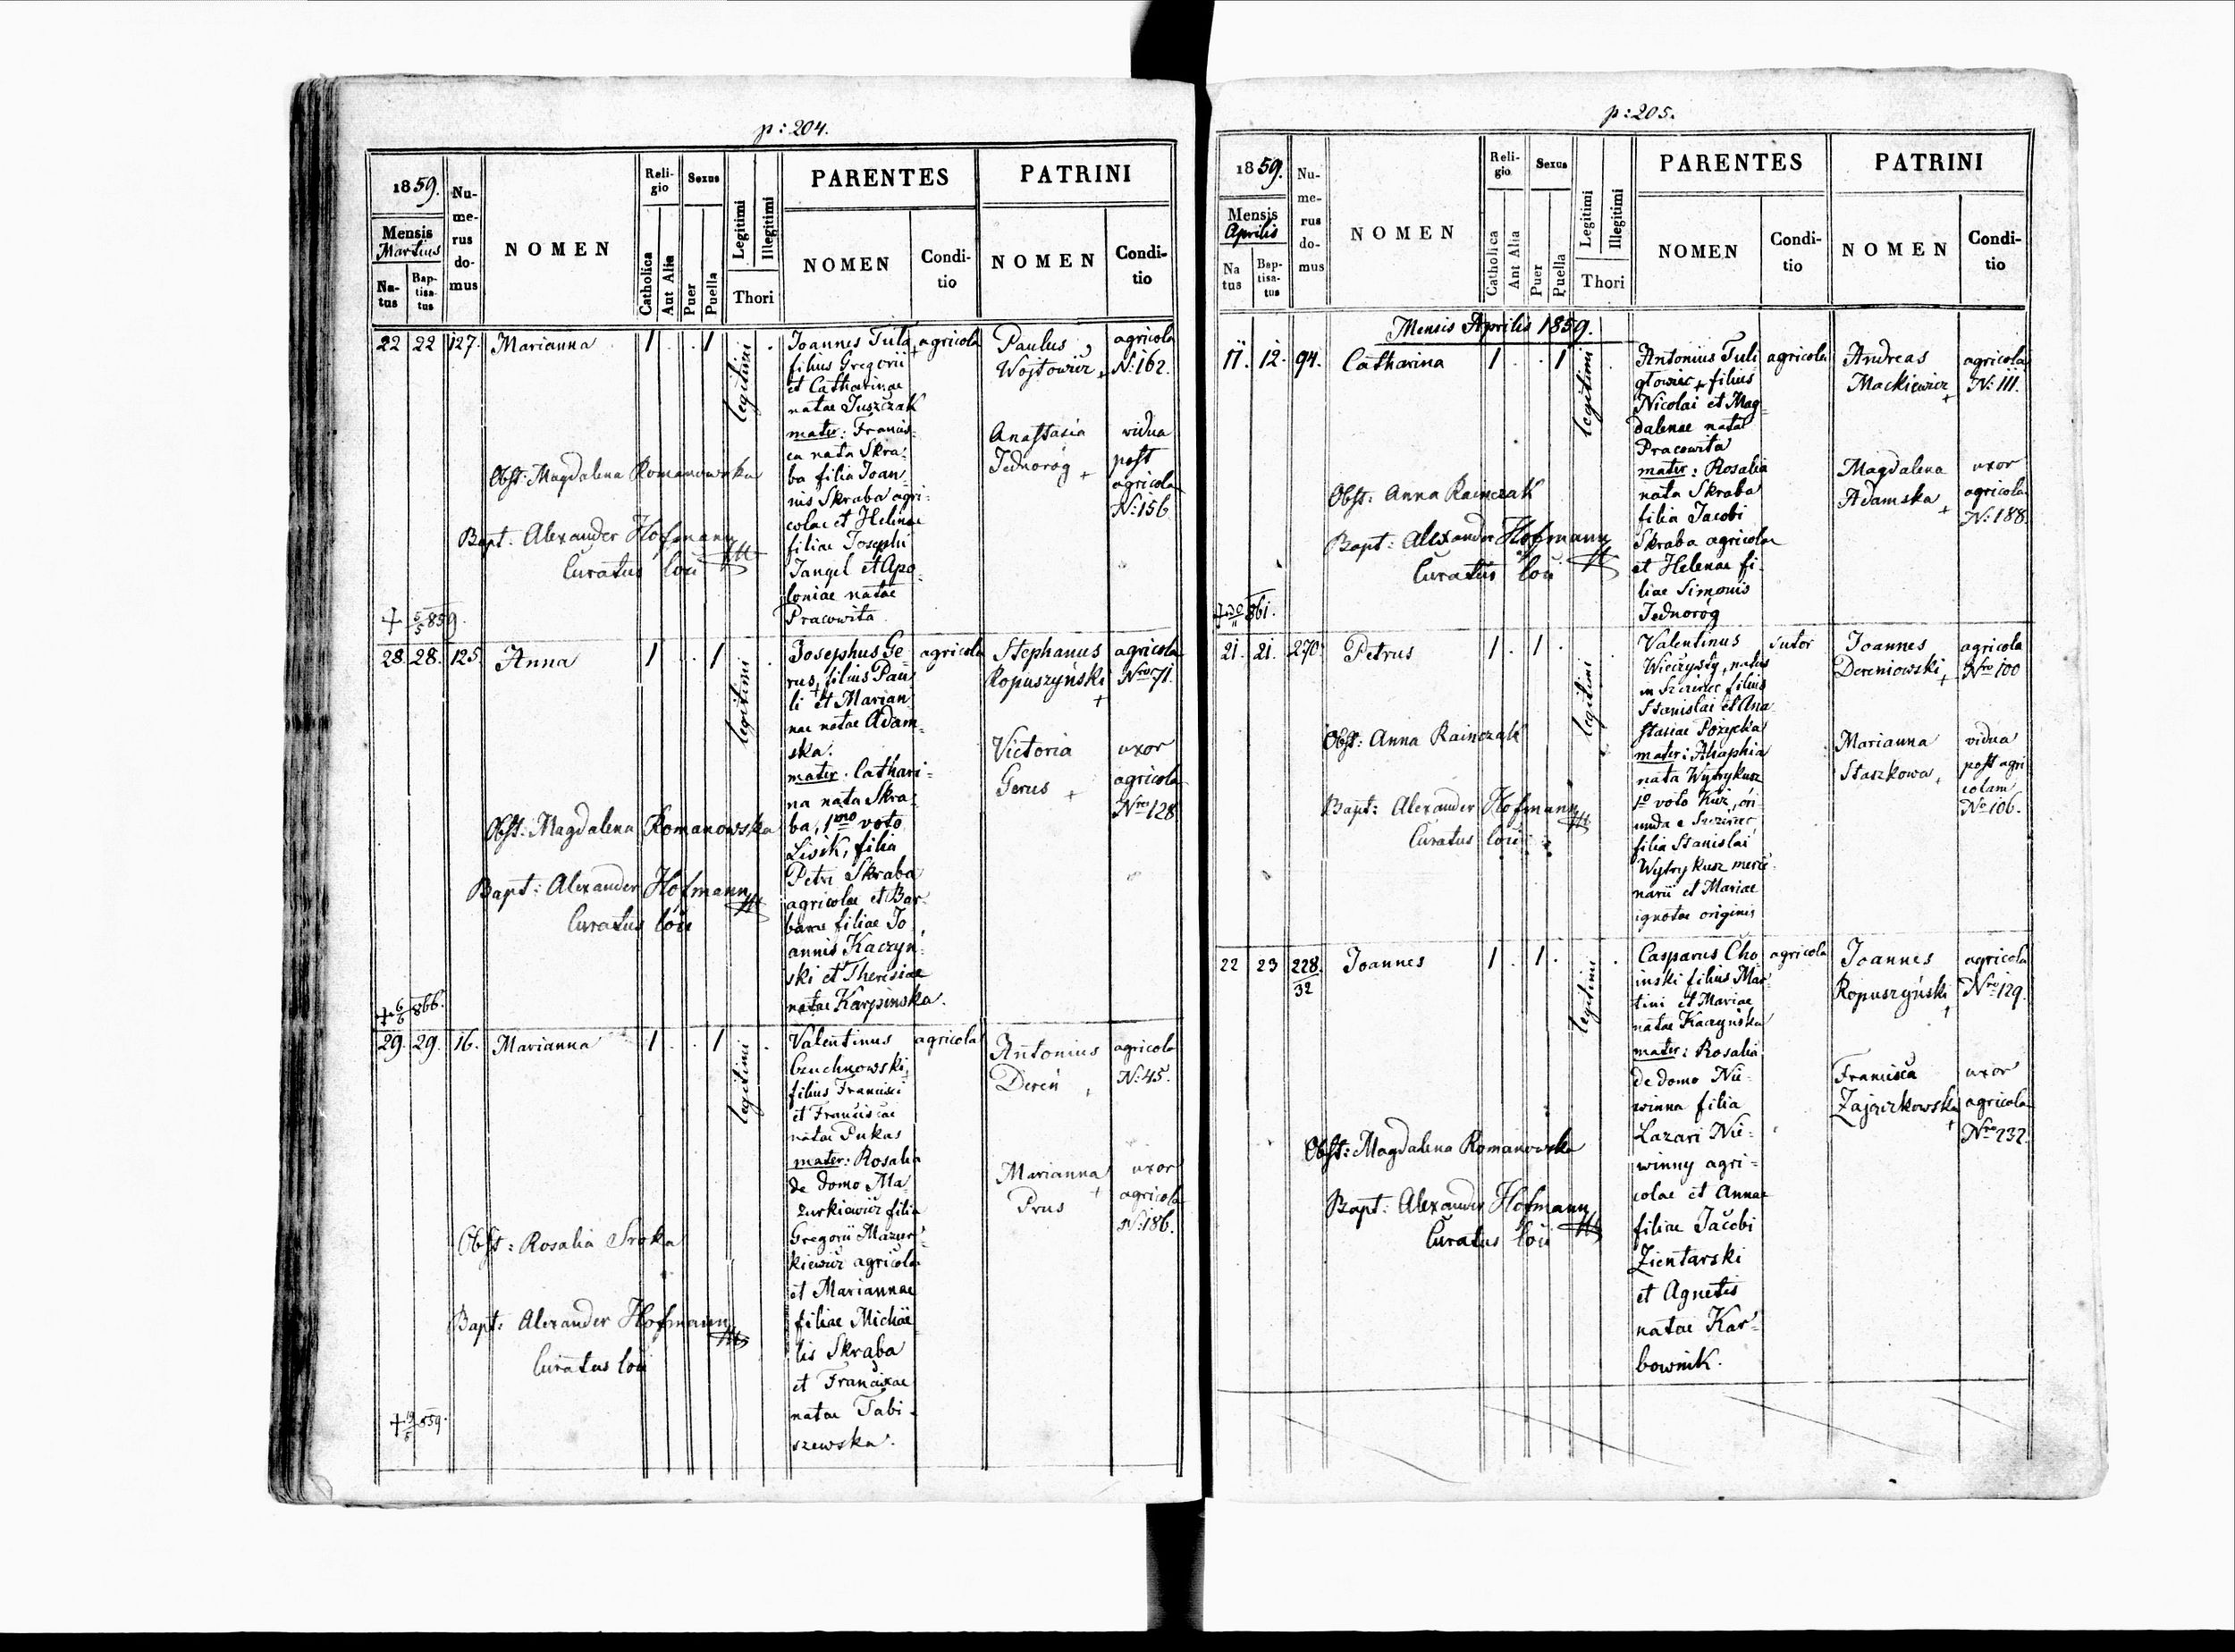 p: 204.
1859.
Mensis
Martius
Na-
tus
Bap-
tisa-
tus
Nu-
me-
rus
do-
mus
NOMEN
Reli-
gio
Catholica
Aut Alia
Sexus
Puer
Puella
Legitimi
Illegitimi
Thori
PARENTES
NOMEN
Condi-
tio
PATRINI
NOMEN
Condi-
tio
22 22 127. Marianna 1 . . 1 legitimi .
Joannes Tuta, agricola
filius Gregorii
et Catharinae
natae Juszczak
mater: Francis-
ca nata Skra-
ba filia Joan-
nis Skraba agri-
colae et Helenae
filiae Josephi
Jangel et Apo-
loniae natae
Pracowita
Paulus
Wojtowicz +
agricola
N: 162.
Anastasia
Jednoróg +
vidua
post
agricola
N: 156
Obst: Magdalena Romanowska
Bapt: Alexander Hofmann
Curatus loci
+ 5/5 859.
28. 28. 125. Anna 1 . . 1 legitimi .
Josephus Ge- agricola
rus, filius Pau-
li et Marian-
nae natae Adam-
ska.
mater: Cathari-
na nata Skra-
ba, 1mo voto
Lisek, filia
Petri Skraba
agricolae et Bar-
barae filiae Jo-
annis Kaczyn-
ski et Theresiae
natae Karpinska.
Stephanus
Ropuszyński +
agricola
Nro 71.
Victoria
Gerus +
uxor
agricola
Nro 128
Obst: Magdalena Romanowska
Bapt: Alexander Hofmann
Curatus loci
+ 6/6 866.
29. 29. 16. Marianna 1 . . 1 legitimi .
Valentinus agricola
Czuchnowski,
filius Francisci
et Franciscae
natae Pukas
mater: Rosalia
de domo Ma-
zurkiewicz filia
Gregorii Mazur-
kiewicz agricola
et Mariannae
filiae Michae-
lis Skraba
et Franciscae
natae Tabi-
szewska.
Antonius
Dereń
agricola
N: 45.
Marianna
Prus
uxor
agricola
N: 186.
Obst: Rosalia Sroka
Bapt: Alexander Hofmann
Curatus loci
+ 19/6 859.
p: 205.
1859.
Mensis
Aprilis
Na
tus
Bap-
tisa-
tus
Nu-
me-
rus
do-
mus
NOMEN
Reli-
gio
Catholica
Aut Alia
Sexus
Puer
Puella
Legitimi
Illegitimi
Thori
PARENTES
NOMEN
Condi-
tio
PATRINI
NOMEN
Condi-
tio
Mensis Aprilis 1859.
11. 12. 94. Catharina 1 . . 1 legitimi .
Antonius Tuli- agricola
głowicz, filius
Nicolai et Mag-
dalenae nata
Pracowita
mater: Rosalia
nata Skraba
filia Jacobi
Skraba agricolae
et Helenae fi-
liae Simonis
Jednoróg
Andreas
Mackiewicz +
agricola
N: 111.
Magdalena
Adamska +
uxor
agricola
N: 188
Obst: Anna Rainczak
Bapt: Alexander Hofmann
Curatus loci
+ 30/11 861.
21. 21. 270. Petrus 1 . 1 . legitimi
Valentinus sutor
Wieczysty, natus
in Szczirec filius
Stanislai et Ana-
stasiae Pozycka
mater: Ahaphia
nata Wytrykusz
1o voto Kuz, ori-
unda e Szczirec
filia Stanislai
Wytrykusz merce-
narii et Mariae
ignotae originis
Joannes
Dereniowski, +
agricola
Nro 100
Marianna
Staszkowa,
vidua
post agri-
colam
No 106.
Obst: Anna Rainczak
Bapt: Alexander Hofmann
Curatus loci
22 23 228./32 Joannes 1 . 1 . legitimi .
Casparus Cho- agricola
inski filius Mar-
tini et Mariae
natae Kaczyńska
mater: Rosalia
de domo Nie-
winna filia
Lazari Nie-
winny agri-
colae et Annae
filiae Jacobi
Zientarski
et Agnetis
natae Kar-
bownik.
Joannes
Ropuszyński,
agricola
Nro 129.
Francisca
Zajączkowska +
uxor
agricola
Nro 232.
Obst: Magdalena Romanowska
Bapt: Alexander Hofmann
Curatus loci